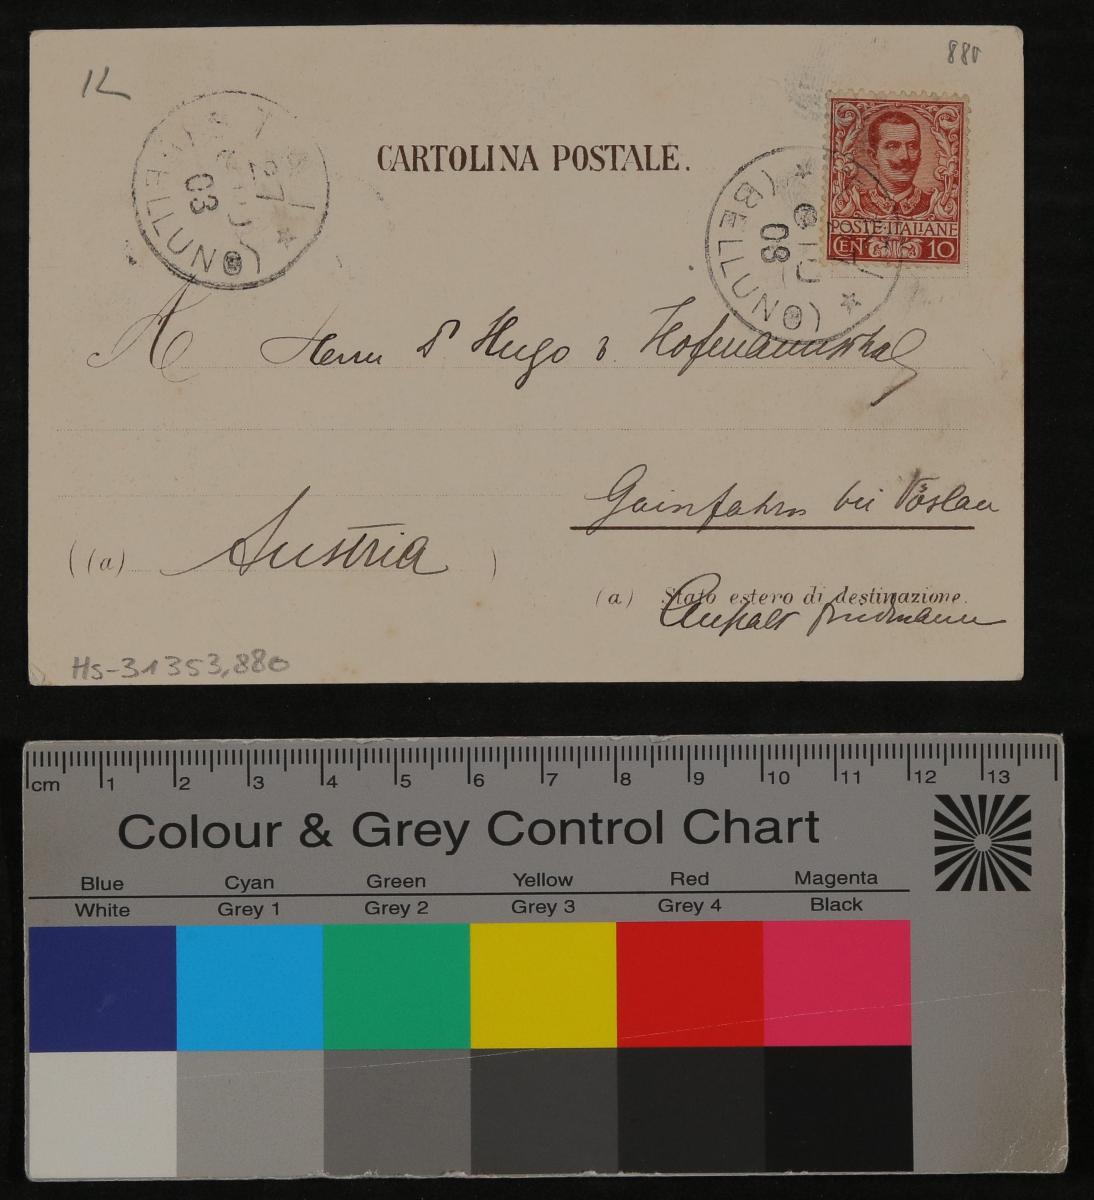 880
CARTOLINA POSTALE.
27
03
(BELLUNO)
03
(BELLUNO)
POSTE·ITALIANE
CEN 10
A Herrn Dr Hugo v Hofmannsthal
Gainfahrn bei Vöslau
((a) Austria )
(a) Stato estero di destinazione.
Anstalt Friedmann
Hs-31353,880
cm 1 2 3 4 5 6 7 8 9 10 11 12 13
Colour & Grey Control Chart
Blue Cyan Green Yellow Red Magenta
White Grey 1 Grey 2 Grey 3 Grey 4 Black